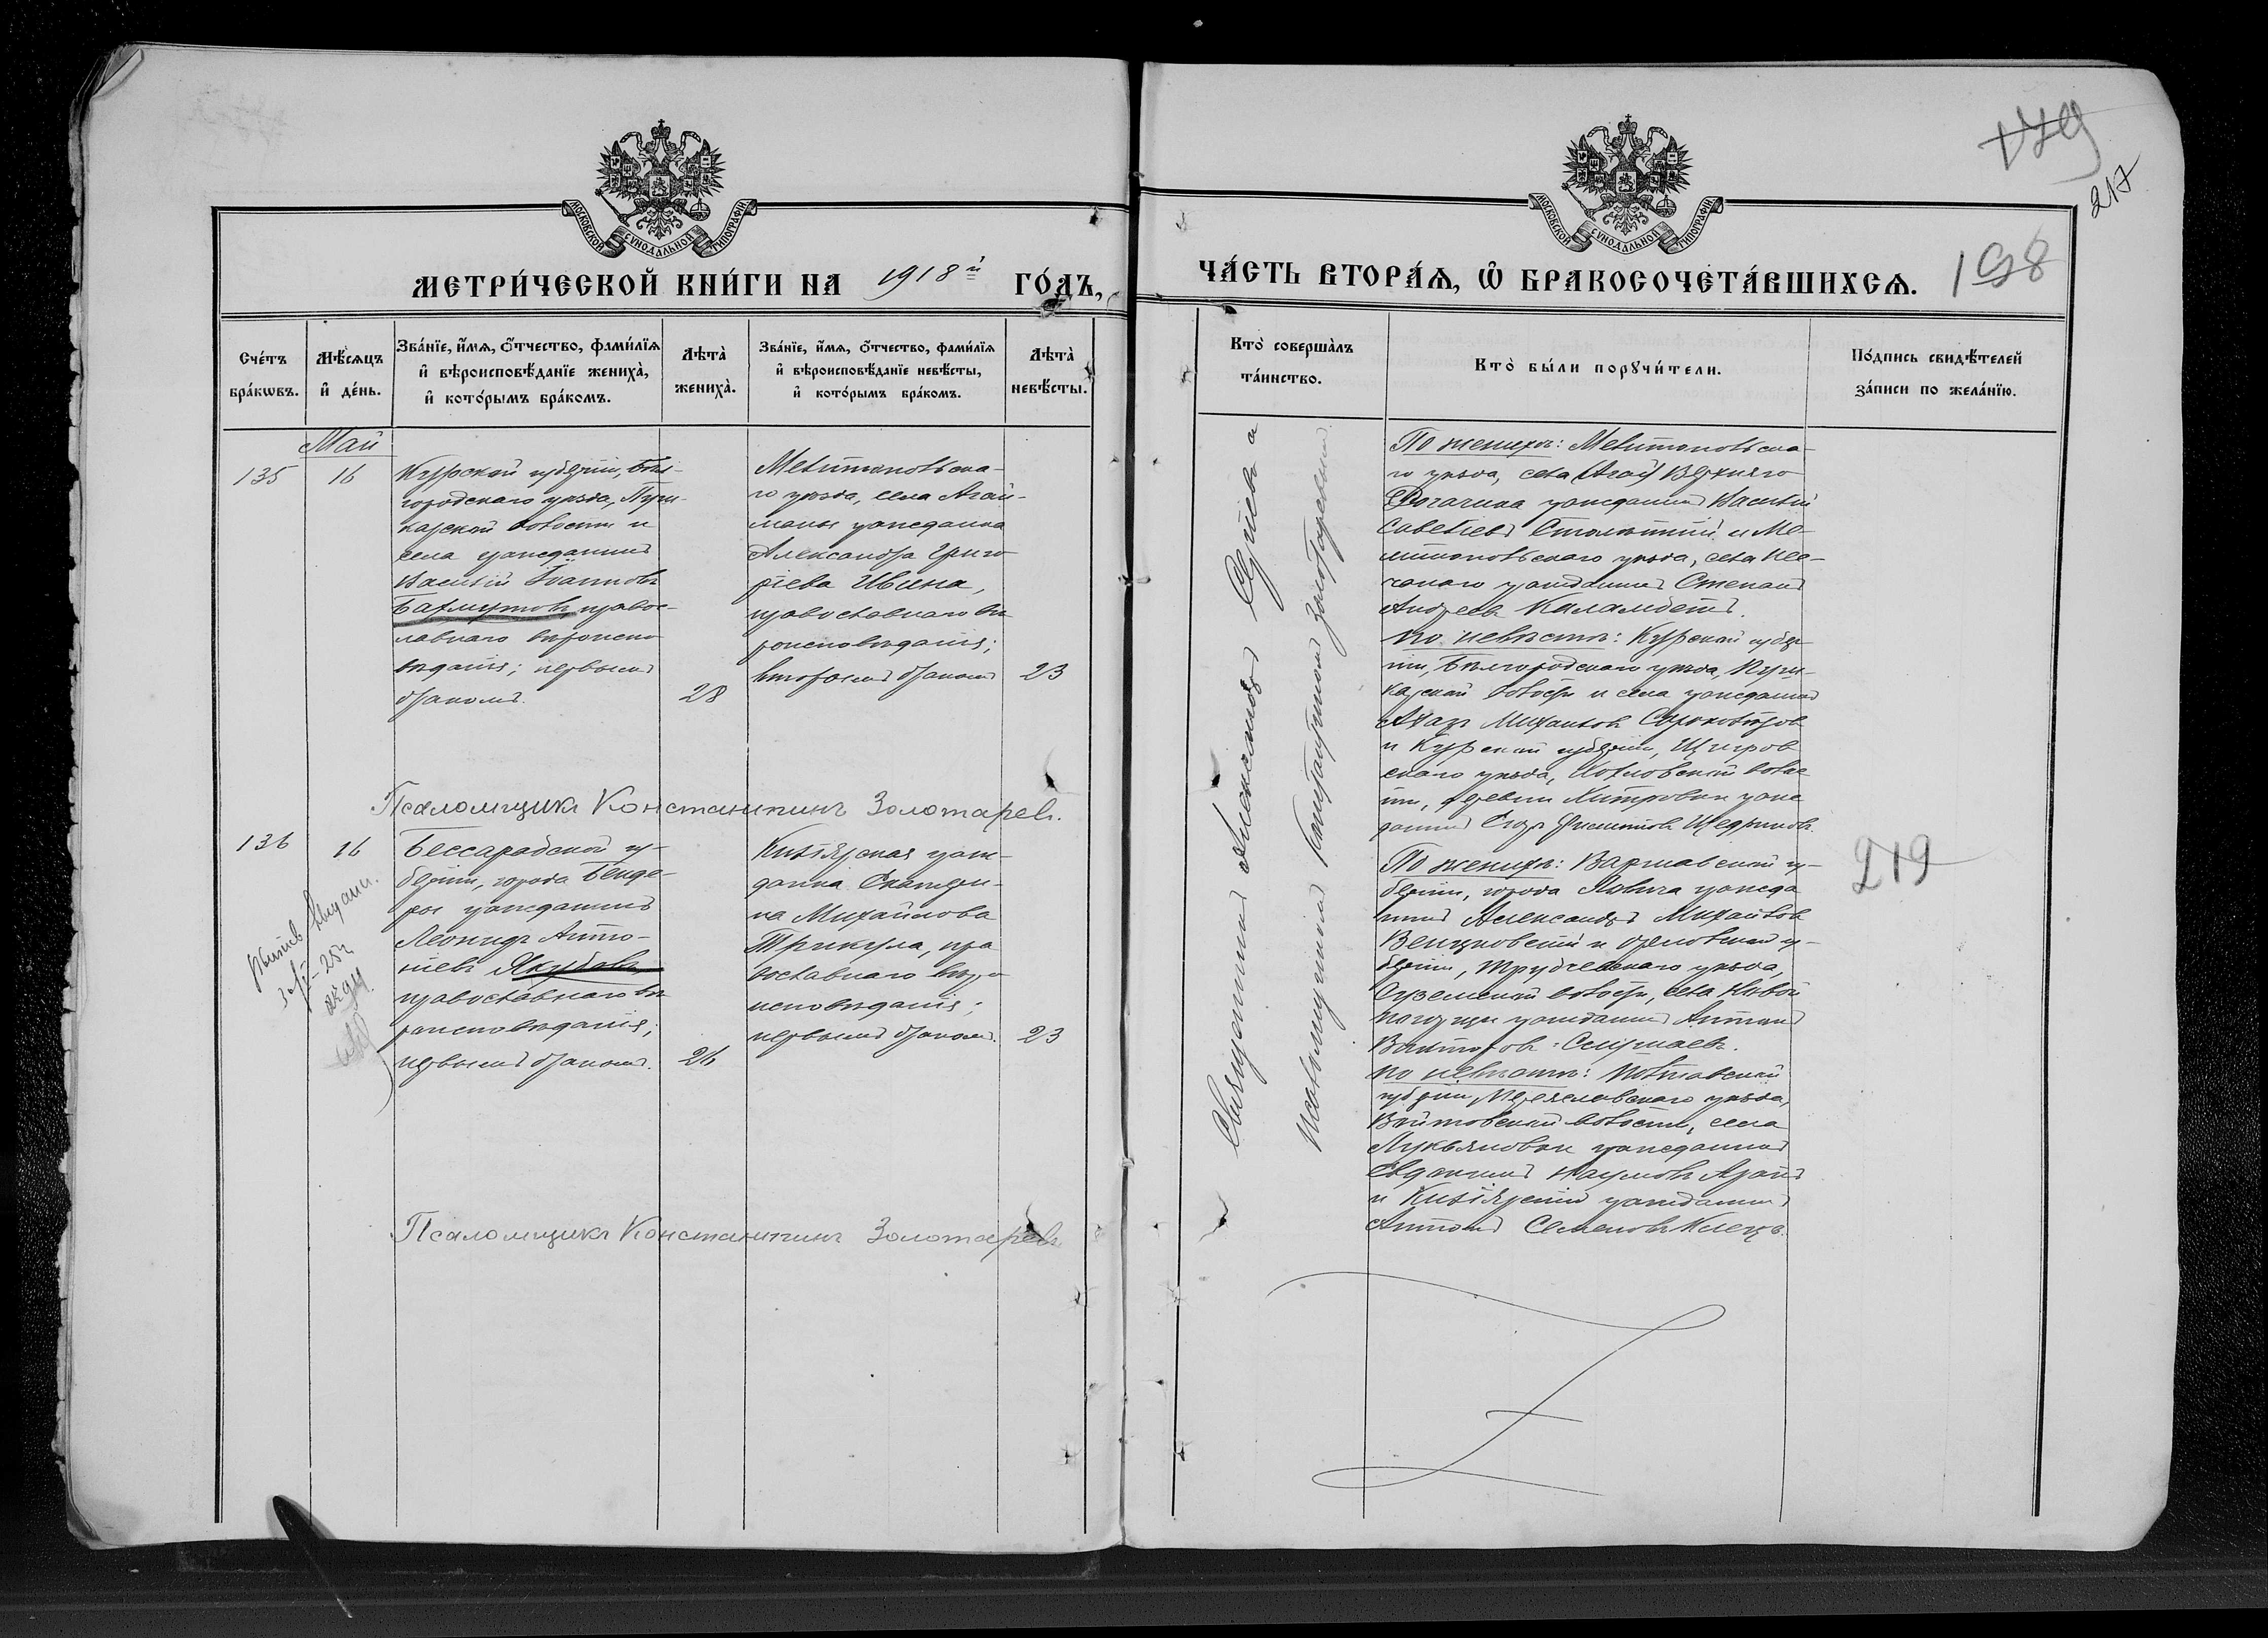 179
217
198
МОСКОВСКОЙ СѴНОДАЛЬНОЙ ТИПОГРАФІИ
МЕТРИ́ЧЕСКОЙ КНИ́ГИ НА 1918й ГО́ДЪ,
Сче́тъ бра́кѡвъ.
Мѣ́сяцъ и҆ де́нь.
Зва́нїе, и҆́мѧ, ѻ҆́тчество, фами́лїѧ и҆ вѣроисповѣ́данїе жениха̀, и҆ кото́рымъ бра́комъ.
Лѣта̀ жениха̀.
Зва́нїе, и҆́мѧ, ѻ҆́тчество, фами́лїѧ и҆ вѣроисповѣ́данїе невѣ́сты, и҆ кото́рымъ бра́комъ.
Лѣта̀ невѣ́сты.
Май
135
16
Курской губерніи, Бѣл-
городскаго уѣзда, Пуш-
карской волости и
села гражданинъ
Василій Іоанновъ
Бахмутовъ, правос-
лавнаго вѣроиспо
вѣданія; первымъ
бракомъ.
28
Мелитопольска-
го уѣзда, села Агай-
маны гражданка
Александра Григо
рьева Ивина,
православнаго вѣ
роисповѣданія;
вторымъ бракомъ
23
Псаломщикъ Константинъ Золотарев.
136
16
Бессарабской гу-
берніи, города Бенде-
ры гражданинъ
Леонидъ Анто-
ніевъ Якубовъ,
православнаго вѣ
роисповѣданія;
первымъ бракомъ.
26
Кизіярская граж-
данка Екатери-
на Михайлова
Трикула, пра
вославнаго вѣро
исповѣданія;
первымъ бракомъ.
23
Псаломщикъ Константинъ Золотаревъ
МОСКОВСКОЙ СѴНОДАЛЬНОЙ ТИПОГРАФІИ
ЧА́СТЬ ВТОРА́Ѧ, Ѽ БРАКОСОЧЕТА́ВШИХСѦ.
Кто̀ соверша́лъ та́инство.
Кто̀ бы́ли порꙋчи́тели.
По́дпись свидѣ́телей за́писи по жела́нїю.
Священникъ Александръ
Псаломщикъ Константинъ Золотаревъ
По женихѣ: Мелитопольска-
го уѣзда, села Верхняго
Рогачика гражданинъ Василій
Савельевъ Столѣтній и Ме-
литопольскаго уѣзда, села Пес-
чанаго гражданинъ Степанъ
Андреевъ Каламбетъ.
По невѣстѣ: Курской губер
ніи, Бѣлгородскаго уѣзда, Пуш-
карской волости и села гражданинъ
Михаиловъ
и Курской губерніи, Щигров
скаго уѣзда, волос
ти, деревни Хитровки граж
данинъ Егоръ Филиповъ Щедриновъ
По женихѣ: Варшавской гу-
берніи, города Ловича гражда
нинъ Александръ Михаиловъ
и Орловской гу-
берніи, Трубчевскаго уѣзда,
Суземской волости, села Новой
Погощи гражданинъ Антонъ
Викторовъ
По невѣстѣ: Полтавской
губерніи, Переяславскаго уѣзда,
Войтовской волости, села
Лукьяновки гражданинъ
Евдокимъ Наумовъ
и Кизіярскій гражданинъ
Антонъ Семеновъ
219